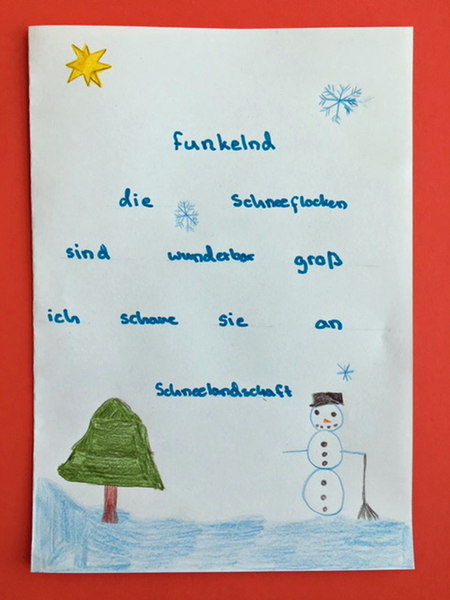 funkelnd
die Schneeflocken
sind wunderbar groß
ich schaue sie an
Schneelandschaft